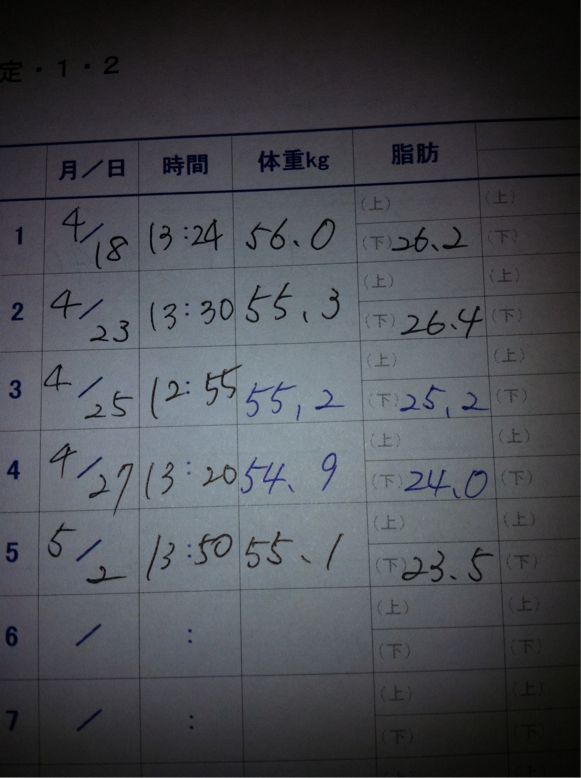 定・1・2
月／日 時間 体重kg 脂肪
(上) (上)
1 4/18 13:24 56.0 (下)26.2 (下)
(上) (上)
2 4/23 13:30 55.3 (下)26.4 (下)
(上) (上)
3 4/25 12:55 55,2 (下)25,2 (下)
(上) (上)
4 4/27 13:20 54.9 (下)24.0 (下)
(上) (上)
5 5/2 13:50 55.1 (下)23.5 (下)
(上) (上)
6 / : (下) (下)
(上) (上)
7 / : (下) (下)